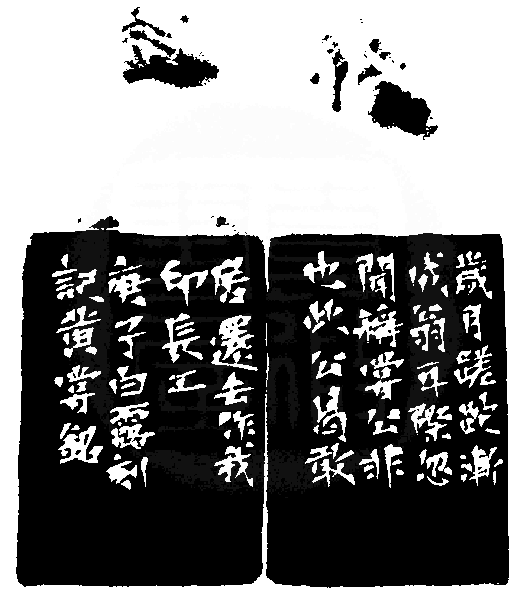 歲月蹉跎漸
成翁耳際忽
聞稱掌公非
也此公曷敢
居還去作我
印長工
庚子白露刻
記黃掌銘